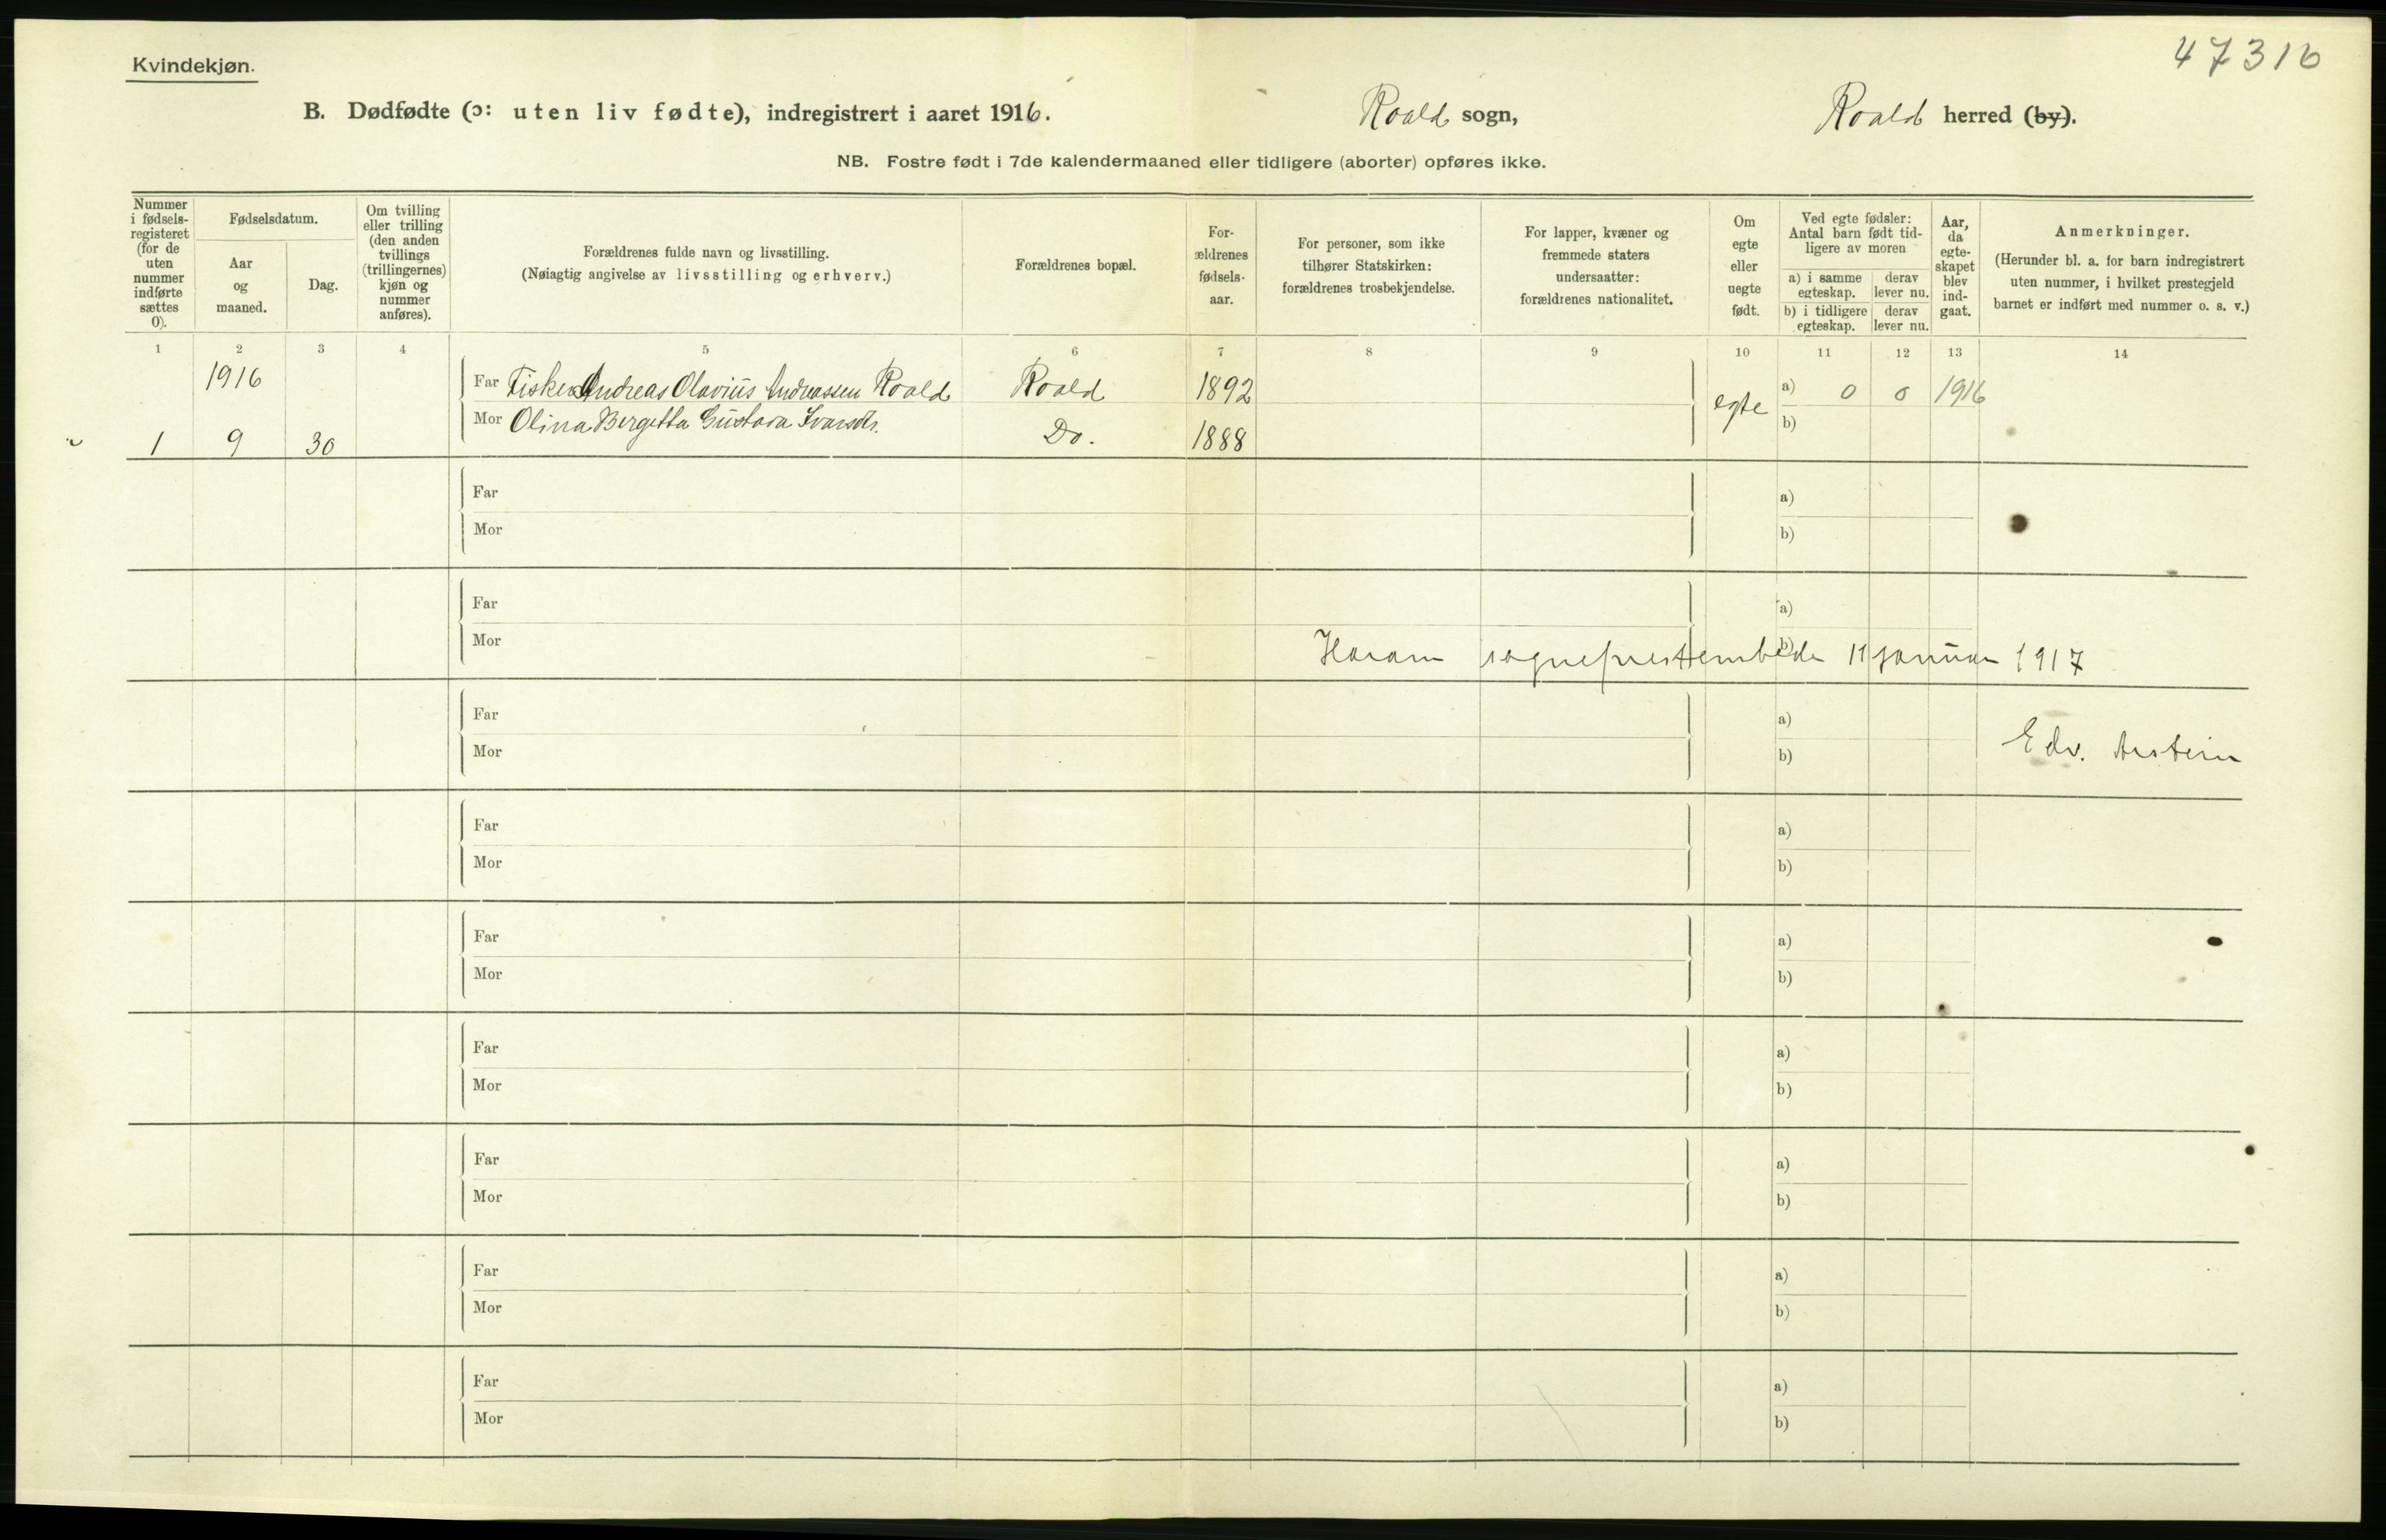 47316
Kvindekjøn.
B. Dødfødte (ɔ: uten liv fødte), indregistrert i aaret 1916. Roald sogn, Roald herred (by).
NB. Fostre født i 7de kalendermaaned eller tidligere (aborter) opføres ikke.
Nummer
i fødsels-
registeret
(for de
uten
nummer
indførte
sættes
0).
Fødselsdatum.
Aar
og
maaned.
Dag.
Om tvilling
eller trilling
(den anden
tvillings
(trillingernes)
kjøn og
nummer
anføres).
Forældrenes fulde navn og livsstilling.
(Nøiagtig angivelse av livsstilling og erhverv.)
Forældrenes bopæl.
For-
ældrenes
fødsels-
aar.
For personer, som ikke
tilhører Statskirken:
forældrenes trosbekjendelse.
For lapper, kvæner og
fremmede staters
undersaatter:
forældrenes nationalitet.
Om
egte
eller
uegte
født.
Ved egte fødsler:
Antal barn født tid-
ligere av moren
a) i samme
egteskap.
derav
lever nu.
b) i tidligere
egteskap.
derav
lever nu.
Aar,
da
egte-
skapet
blev
ind-
gaat.
Anmerkninger.
(Herunder bl. a. for barn indregistrert
uten nummer, i hvilket prestegjeld
barnet er indført med nummer o. s. v.)
1 2 3 4 5 6 7 8 9 10 11 12 13 14
1916 Far Fisker Andreas Olavius Andreassen Roald Roald 1892 egte a) 0 0 1916
1 9 30 Mor Olina Bergitta Gustava Ivarsdtr. Do. 1888 b)
Far a)
Mor b)
Far a)
Mor b)
Haram sogneprestembede 11 januar 1917
Far a)
Mor b)
Edv. Arstein
Far a)
Mor b)
Far a)
Mor b)
Far a)
Mor b)
Far a)
Mor b)
Far a)
Mor b)
Far a)
Mor b)